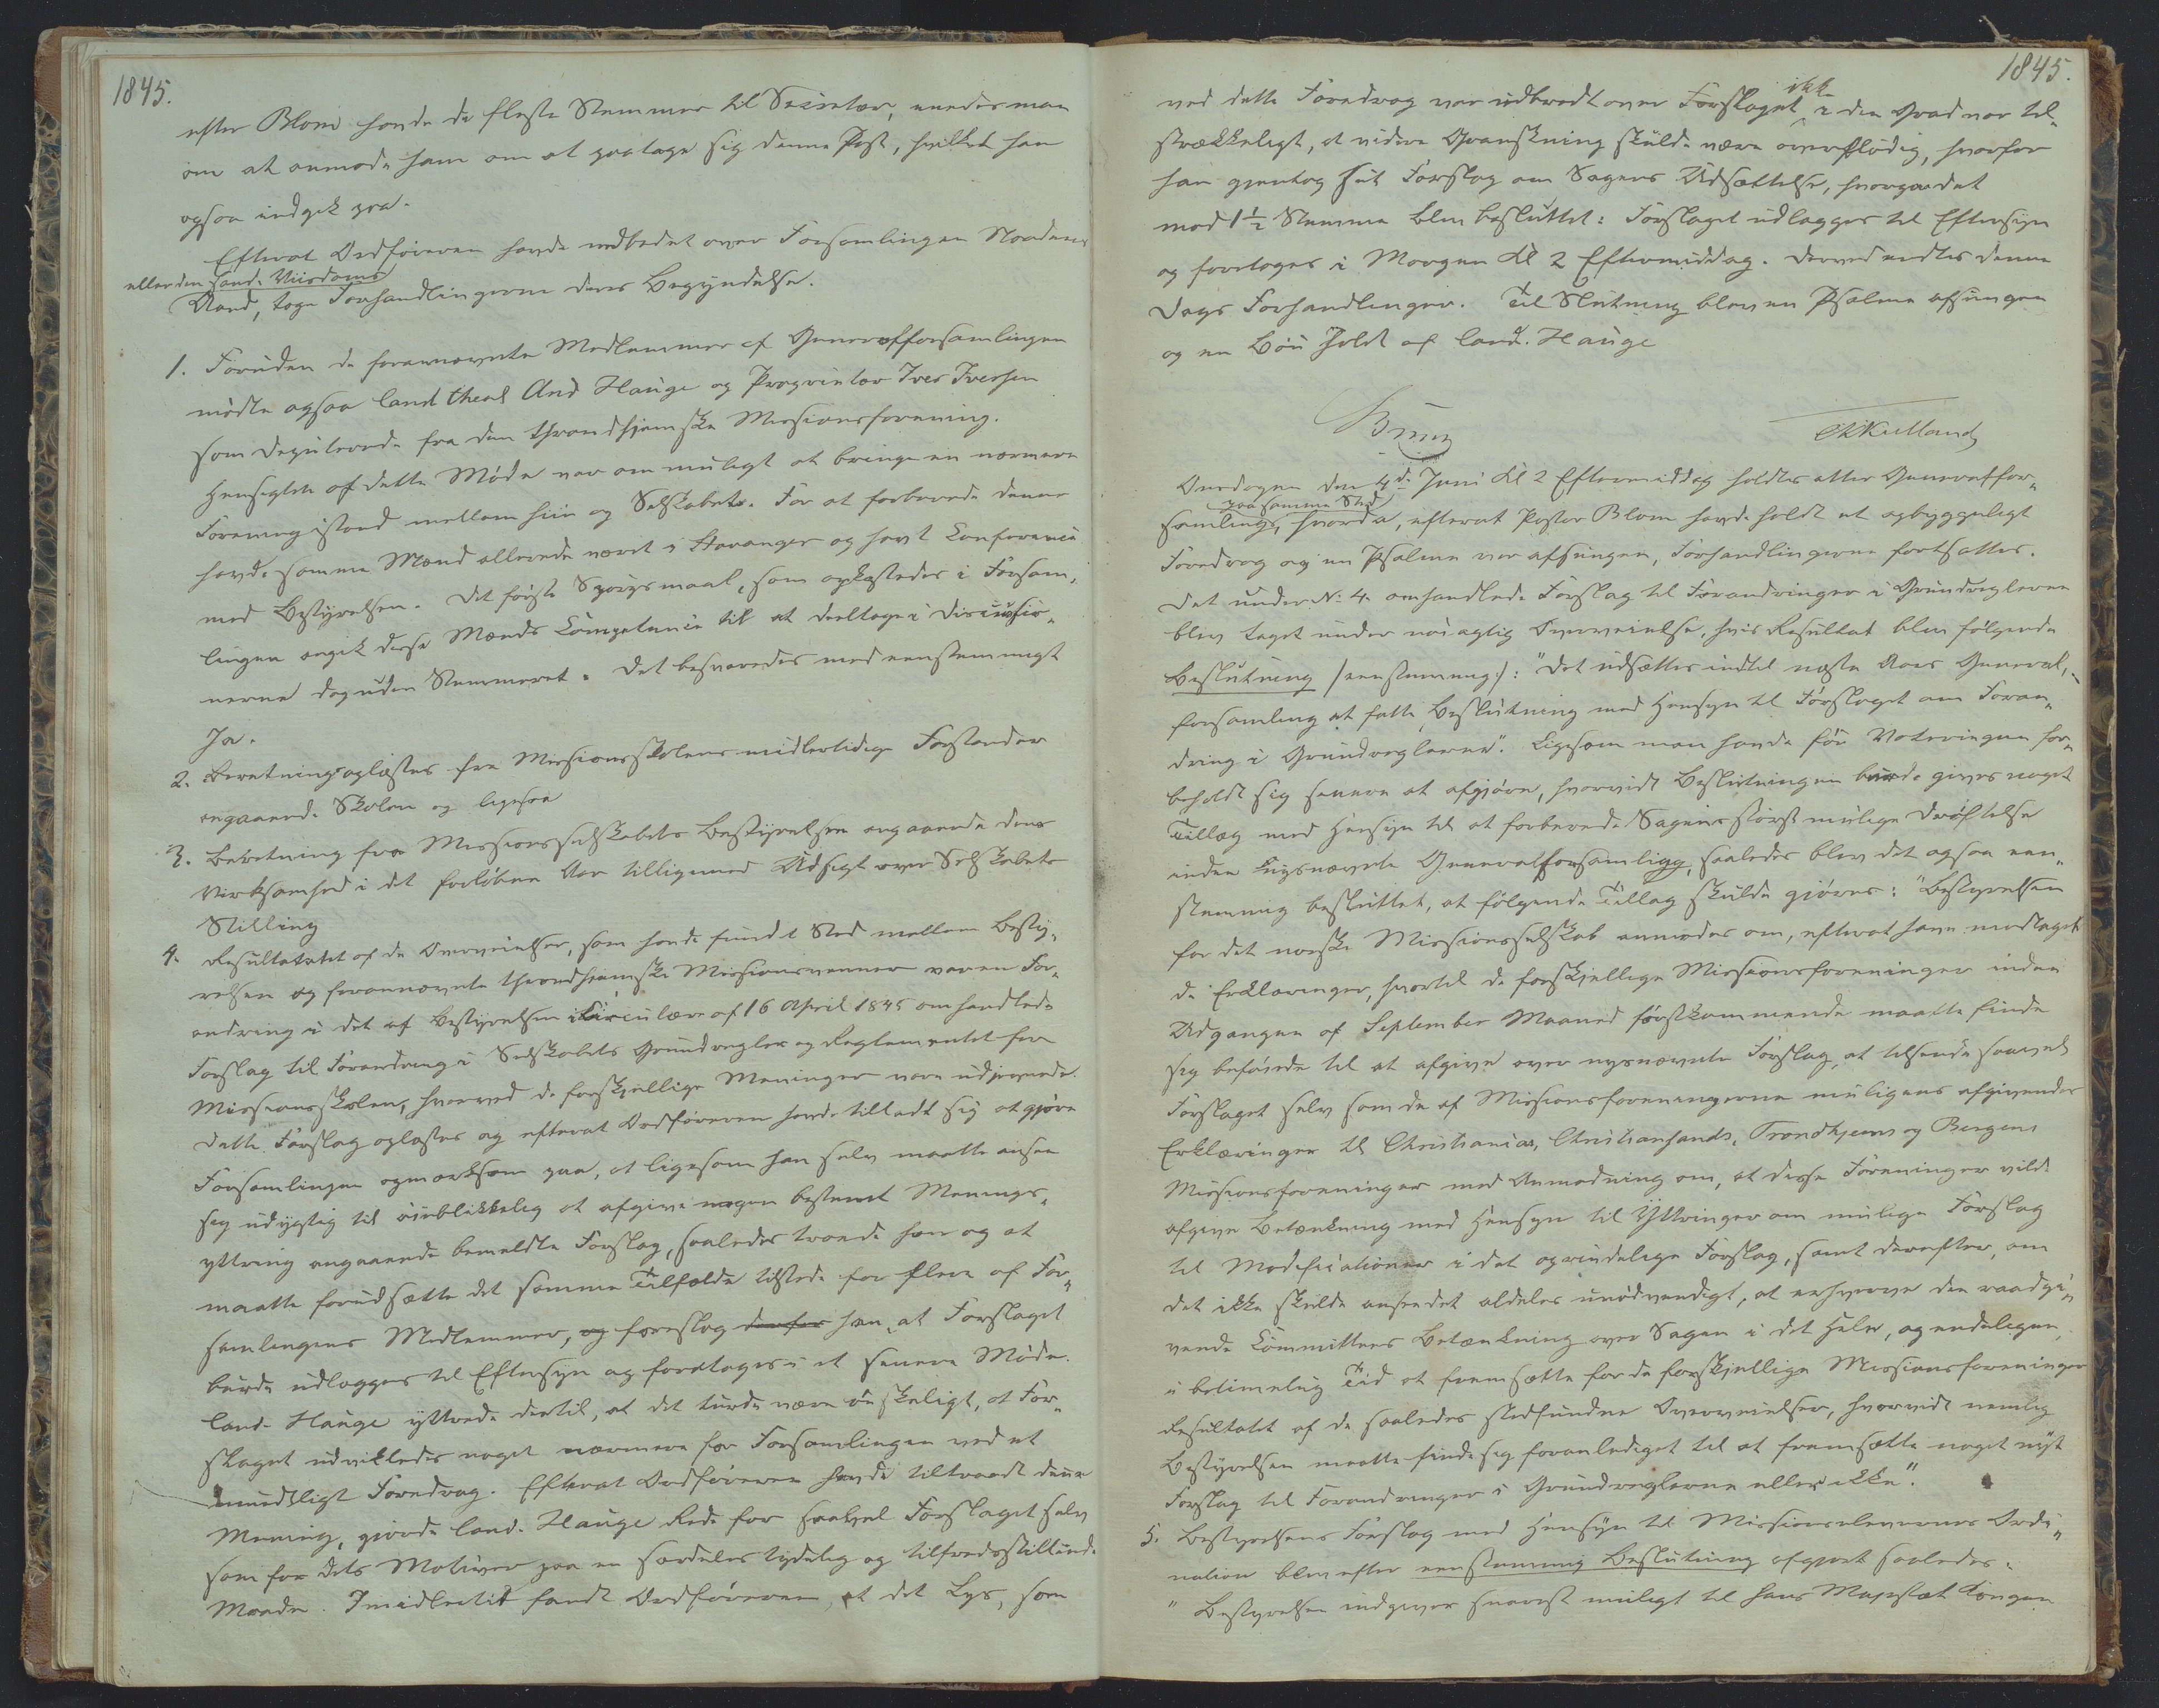 1845.
efter Blom havde de fleste Stemmer til Secretær, enedes man
om at anmode ham om at paatage sig denne Post, hvilket han
ogsaa indgik paa.
Efterat Ordføreren havde nedbedet over Forsamlingen Naadens
eller den sande Viisdoms
Aand, toge Forhandlingerne deres Begyndelse.
1. Foruden de forannævnte Medlemmer af Generalforsamlingen
mødte ogsaa Cand theol And Hauge og Proprietær Iver Iversen
som Deputerede fra den throndhjemske Missionsforening.
Hensigten af dette Møde var om muligt at bringe en nærmere
Forening istand mellem hiin og Selskabet. For at forberede denne
havde samme Mænd allerede været i Stavanger og havt Conference
med Bestyrelsen. Det første Spørgsmaal, som opkastedes i Forsam-
lingen angik disse Mænds Competence til at deeltage i Discussio-
nerne dog uden Stemmeret. Det besvaredes med eenstemmigt
Ja.
2. Beretning oplæstes fra Missionsskolens midlertidige Forstander
angaaende Skolen og ligesaa
3. Beretning fra Missionsselskabets Bestyrelse angaaende dens
Virksomhed i det forløbne Aar tilligemed Udsigt over Selskabets
Stilling
4. Resultatet af de Overveielser, som havde fundt Sted mellem Besty-
relsen og forannævnte throndhjemske Missionsvenner var en For-
andring i det af Bestyrelsen i Circulære af 16 April 1845 omhandlede
Forslag til Forandring i Selskabets Grundregler og Reglementet for
Missionsskolen, hvorved de forskjellige Meninger vare udjevnede.
Dette Forslag oplæstes og efterat Ordføreren havde tilladt sig at gjøre
Forsamlingen opmærksom paa, at ligesom han selv maatte ansee
sig udygtig til øieblikkelig at afgive nogen bestemt Menings-
yttring angaaende bemeldte Forslag, saaledes troede han og at
maatte forudsætte det samme Tilfælde tilstede for flere af For-
samlingens Medlemmer, og foreslog derfor han, at Forslaget
burde udlægges til Eftersyn og foretages i et senere Møde.
Cand. Hauge yttrede dertil, at det turde være ønskeligt, at For-
slaget udvikledes noget nærmere for Forsamlingen ved et
mundtligt Foredrag. Efterat Ordføreren havde tiltraadt denne
Mening, gjorde Cand. Hauge Rede for saavel Forslaget selv
som for dets Motiver paa en særdeles tydelig og tilfredsstillende
Maade. Imidlertid fandt Ordføreren, at det Lys, som
1845.
ikke
ved dette Foredrag var udbredt over Forslaget i den Grad var til-
strækkeligt, at videre Granskning skulde være overflødig, hvorfor
han gjentog sit Forslag om Sagens Udsættelse, hvorpaa det
mod 1½ Stemme blev besluttet: Forslaget udlægges til Eftersyn
og foretages i Morgen Kl 2 Eftermiddag. Derved endtes denne
Dags Forhandlinger. Til Slutning blev en Psalme afsungen
og en Bøn holdt af Cand. Hauge
Onsdagen den 4de Juni Kl 2 Eftermiddag holdtes atter Generalfor-
paa samme Sted
samling, hvorda, efterat Pastor Blom havde holdt et opbyggeligt
Foredrag og en Psalme var afsungen, Forhandlingerne fortsattes.
Det under No. 4. omhandlede Forslag til Forandringer i Grundreglerne
blev taget under nøiagtig Overveielse, hvis Resultat blev følgende
Beslutning /:eenstemmig:/: "Det udsættes indtil næste Aars General-
forsamling at fatte Beslutning med Hensyn til Forslaget om Foran-
dring i Grundreglerne". Ligesom man havde før Voteringen for-
beholdt sig senere at afgjøre, hvorvidt Beslutningen burde gives noget
Tillæg med Hensyn til at forberede Sagens størst mulige Drøftelse
inden nysnævnte Generalforsamling, saaledes blev det ogsaa een-
stemmig besluttet, at følgende Tillæg skulde gjøres: "Bestyrelsen
for det norske Missionsselskab anmodes om, efterat have modtaget
de Erklæringer, hvortil de forskjellige Missionsforeninger inden
Udgangen af September Maaned førstkommende maatte finde
sig beføiede til at afgive over nysnævnte Forslag, at tilsende saavel
Forslaget selv som de af Missionsforeningerne muligens afgivende
Erklæringer til Christiania, Christiansands, Trondhjems og Bergens
Missionsforeninger med Anmodning om, at disse Foreninger vilde
afgive Betænkning med Hensyn til Yttringer om mulige Forslag
til Modificationer i det oprindelige Forslag, samt derefter, om
det ikke skulde ansees det aldeles unødvendigt, at erhverve den raadgi-
vende Committees Betænkning over Sagen i det Hele, og endeligen
i betimelig Tid at fremsætte for de forskjellige Missionsforeninger
Resultatet af de saaledes stedfundne Overveielser, hvorvidt nemlig
Bestyrelsen maatte finde sig foranlediget til at fremsætte noget nyt
Forslag til Forandringer i Grundreglerne eller ikke."
5. Bestyrelsens Forslag med Hensyn til Missionselevernes Ordi-
nation blev efter eenstemmig Beslutning afgjort saaledes:
"Bestyrelsen indgiver snarest muligt til Hans Majestæt Kongen